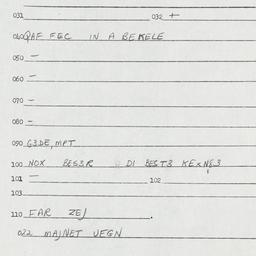 031 032 +
040 QAF FGC IN A BEKELE
050 —
060 —
070 —
080 —
090 G3DE, MPT
100 NOX BES3R DI BEST3 KEXNG3
101 — 102
103
110 FAR ZEJ
022 MAJNET UEGN